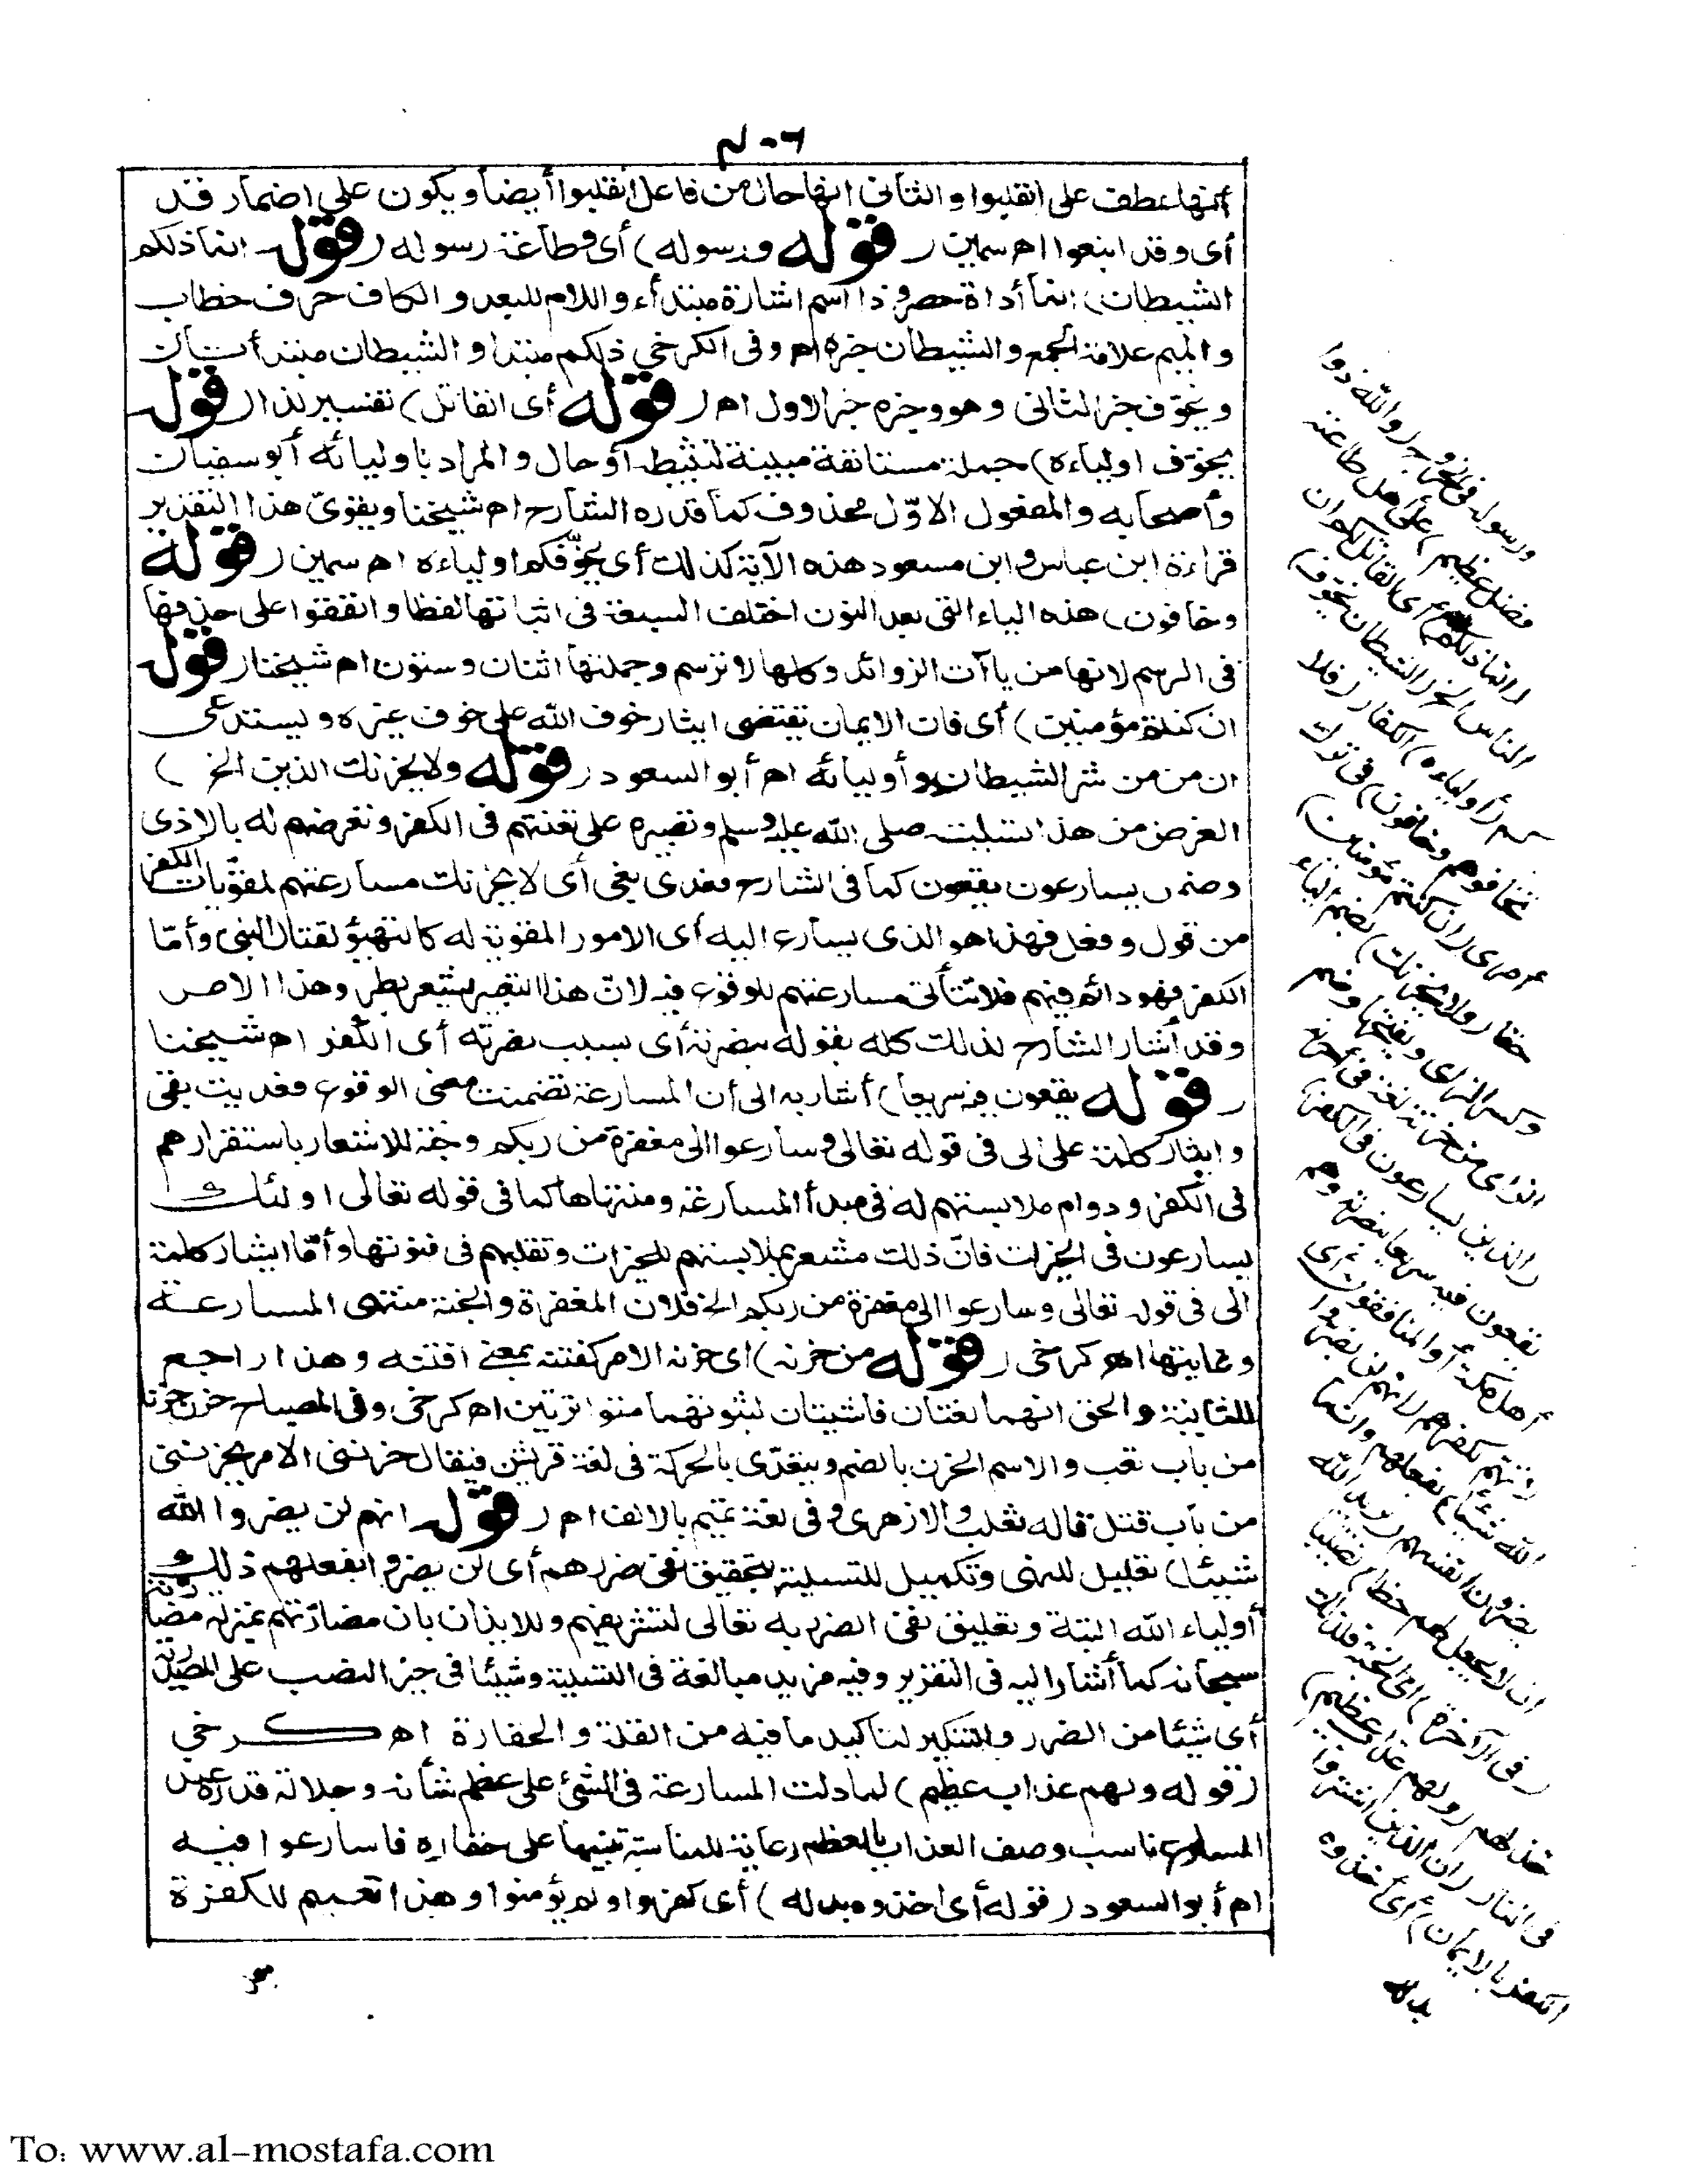 ٤٠٦
أنها عطف على انقلبوا والثانى انها حال من فاعل انقلبوا أيضا ويكون على اضمار قد
أى وقد اتبعوا اهـ سمين (قوله ورسوله) أى وطاعة رسوله (قوله انما ذلكم
الشيطان) انما أداة حصر وذا اسم اشارة مبتدأ واللام للبعد والكاف حرف خطاب
والميم علامة الجمع والشيطان خبره اهـ وفى الكرخى ذلكم مبتدا والشيطان مبتدأ ثان
ويخوّف خبر الثانى وهو وخبره خبر الاول اهـ (قوله أى القائل) تفسير لذا (قوله
يخوّف اولياءه) جملة مستانفة مبينة لتثبيطه أو حال والمراد باوليائه أبو سفيان
وأصحابه والمفعول الاوّل محذوف كما قدره الشارح اهـ شيخنا ويقوىّ هذا التقدير
قراءة ابن عباس وابن مسعود هذه الآية كذلك أى يخوّفكم اولياءه اهـ سمين (قوله
وخافون) هذه الياء التى بعد النون اختلف السبعة فى اثباتها لفظا واتفقوا على حذفها
فى الرسم لانها من ياآت الزوائد وكلها لا ترسم وجملتها اثنان وستون اهـ شيخنا (قوله
ان كنتم مؤمنين) أى فان الايمان يقتضى ايثار خوف الله على خوف غيره ويستدعى
الامن من شر الشيطان وأوليائه اهـ أبو السعود (قوله ولا يحزنك الذين الخ)
الغرض من هذا تسليته صلى الله عليه وسلم وتصبره على تعنتهم فى الكفر وتعرضهم له بالاذى
وضمن يسارعون يقعون كما فى الشارح فعدى بفى أى لا يحزنك مسارعتهم لمقوّيات الكفر
من قول وفعل فهذا هو الذى يسارع اليه أى الامور المقوية له كالتهيؤ لقتال النبى وأمّا
الكفر فهو دائم فيهم فلا تتأتى مسارعتهم للوقوع فيه لان هذا التعبير يشعر بطرو هذا الامر
وقد أشار الشارح لذلك كله بقوله بنصرته أى بسبب نصرته أى الكفر اهـ شيخنا
(قوله يقعون فيه سريعا) أشار به الى أن المسارعة تضمنت معنى الوقوع فعديت بفى
وايثار كلمة على الى فى قوله تعالى وسارعوا الى مغفرة من ربكم وجنة للاشعار باستقرارهم
فى الكفر ودوام ملابستهم له فى مبدأ المسارعة ومنتهاها كما فى قوله تعالى اولئك
يسارعون فى الخيرات فانّ ذلك مشعر بملابستهم للخيرات وتقلبهم فى فنونها وأمّا ايثار كلمة
الى فى قوله تعالى وسارعوا الى مغفرة من ربكم الخ فلان المغفرة والجنة منتهى المسارعة
وغايتها اهـ كرخى (قوله من حزنه) اى حزنه الامر كفتنه بمعنى افتنه وهذا راجع
للثانية والحق انهما لغتان فاشيتان لثبوتهما متواترتين اهـ كرخى وفى المصباح حزن حزنا
من باب تعب والاسم الحزن بالضم ويتعدّى بالحركة فى لغة قريش فيقال حزننى الامر يحزننى
من باب قتل قاله ثعلب والازهرى وفى لغة تميم بالالف اهـ (قوله انهم لن يضروا الله
شيئا) تعليل للنهى وتكميل للتسلية بتحقيق نفى ضررهم أى لن يضروا بفعلهم ذلك
أولياء الله البتة وتعليق نفى الضرر به تعالى لتشريفهم وللايذان بان مضارّتهم بمنزلة مضارّته
سبحانه كما أشار اليه فى التقرير وفيه مزيد مبالغة فى التسلية وشيئا فى حيز النصب على المصدرية
أى شيئا من الضرر والتنكير لتاكيد ما فيه من القلة والحقارة اهـ كرخى
(قوله ولهم عذاب عظيم) لما دلت المسارعة فى الشئ على عظم شأنه وجلالة قدره عند
المسارع ناسب وصف العذاب بالعظم رعاية للمناسبة تنبيها على حقارة ما سارعوا فيه
اهـ أبو السعود (قوله أى اخذوه بدله) أى كفروا ولم يؤمنوا وهذا تعميم للكفرة
ورسوله فى الخروج (والله ذوا
فضل عظيم) على أهل طاعته
(انما ذلكم) أى القائل لكم ان
الناس الخ (الشيطان يخوّف)
كم (أولياءه) الكفار (فلا
تخافوهم وخافون) فى ترك
أمرى (ان كنتم مؤمنين)
حقا (ولا يحزنك) بضم الياء
وكسر الزاى وبفتحها وضم
الزاى من حزنه لغة فى احزنه
(الذين يسارعون فى الكفر)
يقعون فيه سريعا بنصرته وهم
أهل مكة أو المنافقون أى
لا تهتم لكفرهم (انهم لن يضروا
الله شيئا) بفعلهم وانما
يضرون انفسهم (يريد الله
ان لا يجعل لهم حظا) نصيبا
(فى الآخرة) أى الجنة فلذلك
خذلهم (ولهم عذاب عظيم)
فى النار (ان الذين اشتروا
الكفر بالايمان) أى أخذوه
بدله
To: www.al-mostafa.com